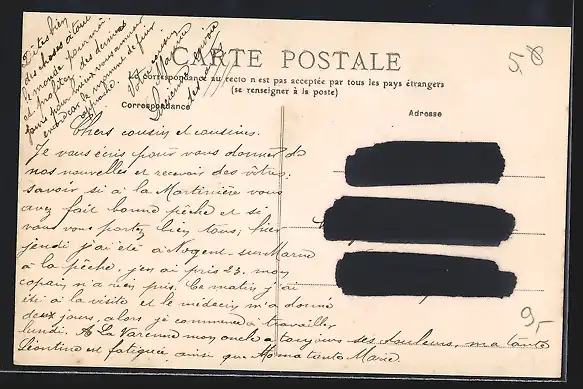 CARTE POSTALE
La correspondance au recto n'est pas acceptée par tous les pays étrangers
(se renseigner à la poste)
Correspondance
Adresse
Dites bien
des choses à tout
le monde pour moi
et profitez des derniers
jours pour
embrasser
approche.
Chers cousin et cousines.
Je vous écris pour vous donner de
nos nouvelles et recevoir des vôtres.
savoir si à la Martinière vous
avez fait bonne pêche et si
vous vous portez bien tous; hier
jeudi j'ai été à Nogent-sur-Marne
à la pêche, j'en ai pris 23. mon
copain n'a rien pris. Ce matin j'ai
été à la visite et le médecin m'a donné
deux jours, alors je commence à travailler
lundi. A La Varenne mon oncle a toujours ses douleurs, ma tante
Léontine est fatiguée ainsi que ma tante Marie.
5,8
9,-